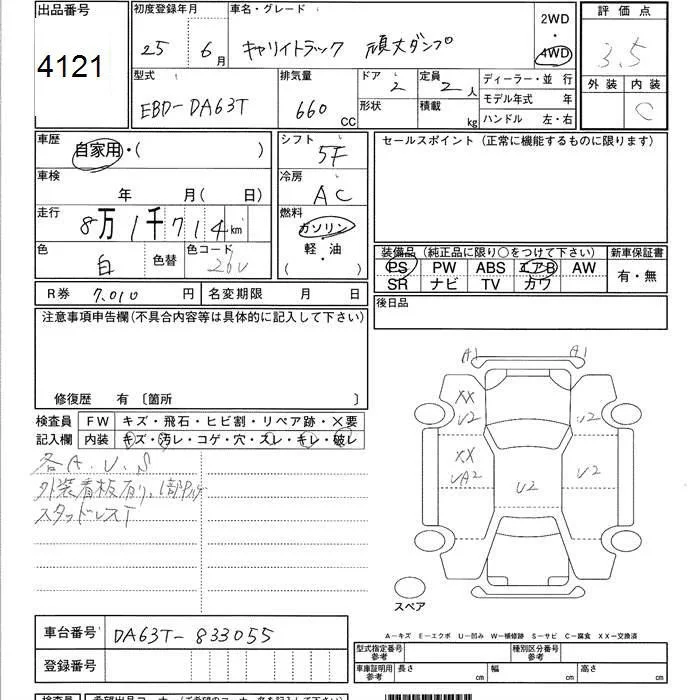 出品番号
4121
初度登録年月
25 6月
車名・グレード
キャリイトラック 頑丈ダンプ
2WD
4WD
評価点
3.5
外装 内装
C
型式
EBD-DA63T
排気量
660 CC
ドア 2
形状
定員 2 人
積載 kg
ディーラー・並行
モデル年式 年
ハンドル 左・右
車歴
自家用・( )
車検
年 月(日)
走行
8万1千714km
色 白 色替
色コード 26U
シフト
5F
冷房
AC
燃料
ガソリン
軽・油
( )
セールスポイント(正常に機能するものに限ります)
装備品(純正品に限り○をつけて下さい)
PS PW ABS エアB AW
SR ナビ TV カワ
新車保証書
有・無
R券 7,010 円 名変期限 月 日
後日品
注意事項申告欄(不具合内容等は具体的に記入して下さい)
修復歴 有〔箇所 〕
検査員 FW キズ・飛石・ヒビ割・リペア跡・×要
記入欄 内装 キズ・汚レ・コゲ・穴・スレ・キレ・破レ
各A.U.S
外装看板有り、1部
スタッドレスT
A1 A1
XX
U2 U2
XX
UA2 U2 U2
スペア
車台番号 DA63T-833055
登録番号
A-キズ E-エクボ U-凹み W-補修跡 S-サビ C-腐食 XX-交換済
型式指定番号 参考 種別区分番号 参考
車庫証明用 参考 長さ cm 幅 cm 高さ cm